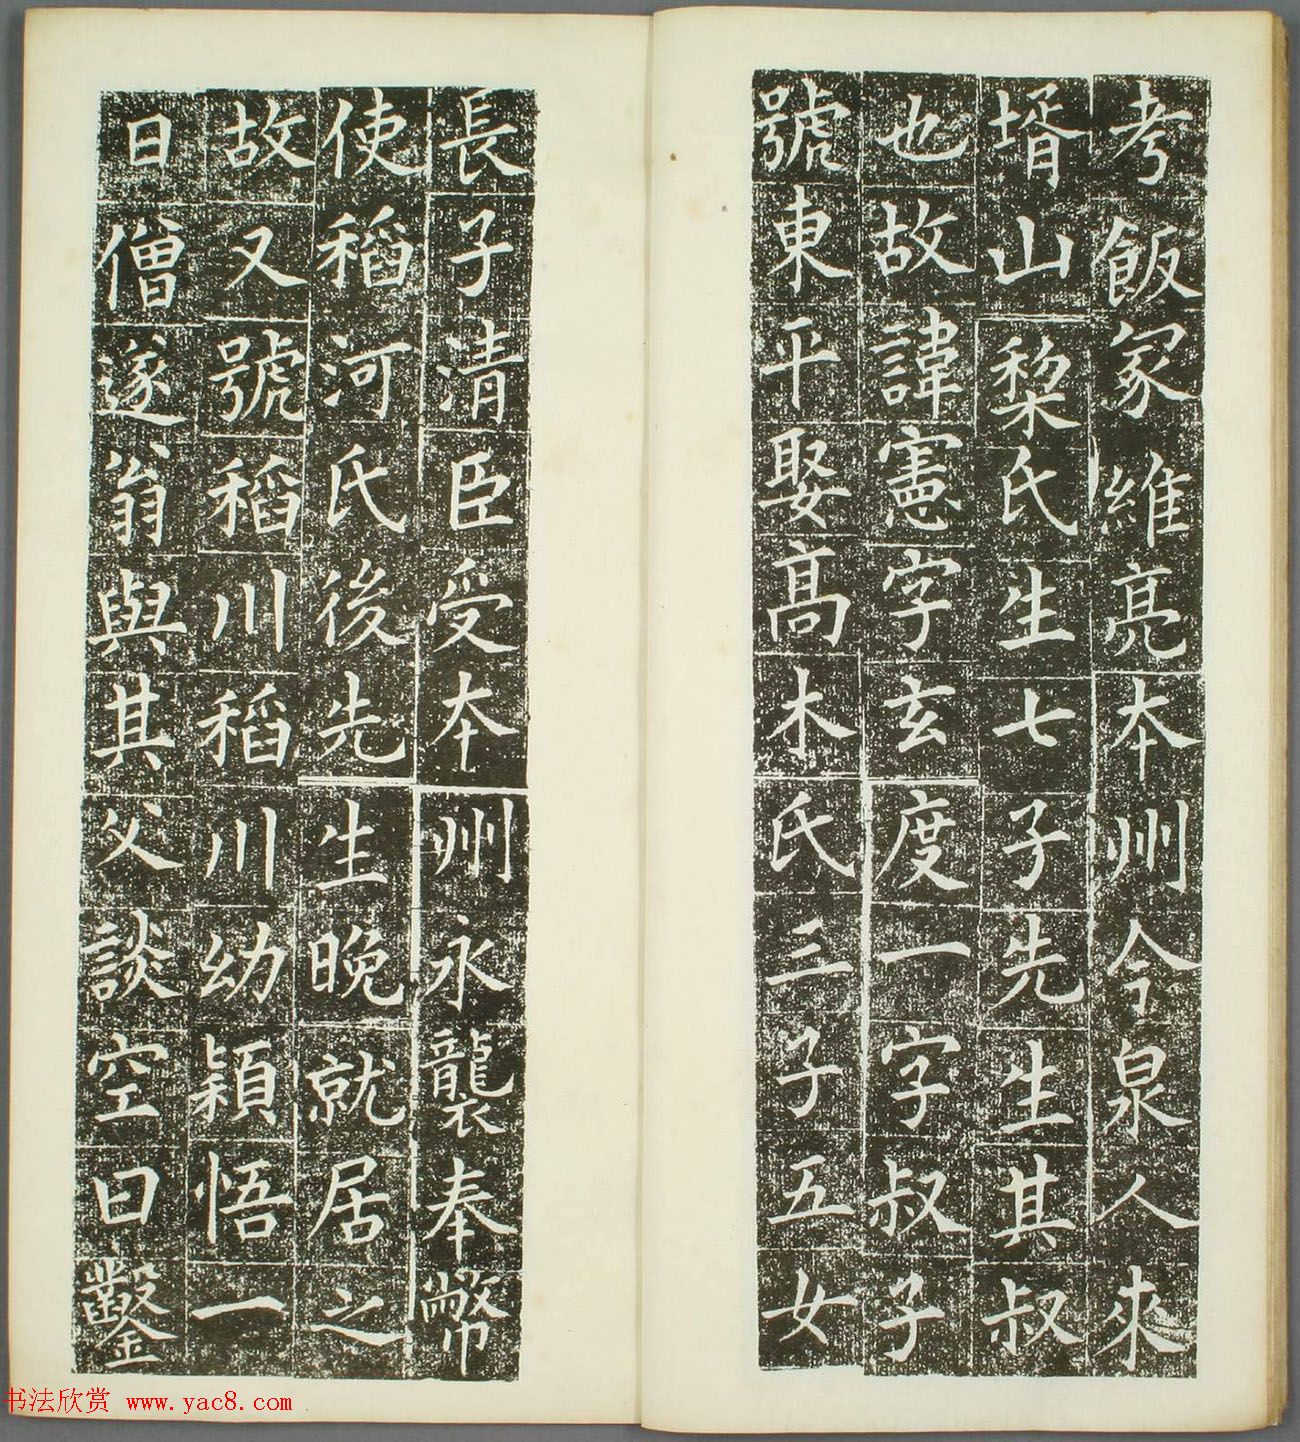 考飯冢維亮本州令泉人来
壻山棃氏生七子先生其叔
也故諱憲字玄度一字叔子
號東平娶髙木氏三子五女
長子清臣受本州永襲奉幣
使稻河氏後先生晚就居之
故又號稻川稻川幼穎悟一
日僧遂翁與其父談空曰鑿
书法欣赏 www.yac8.com